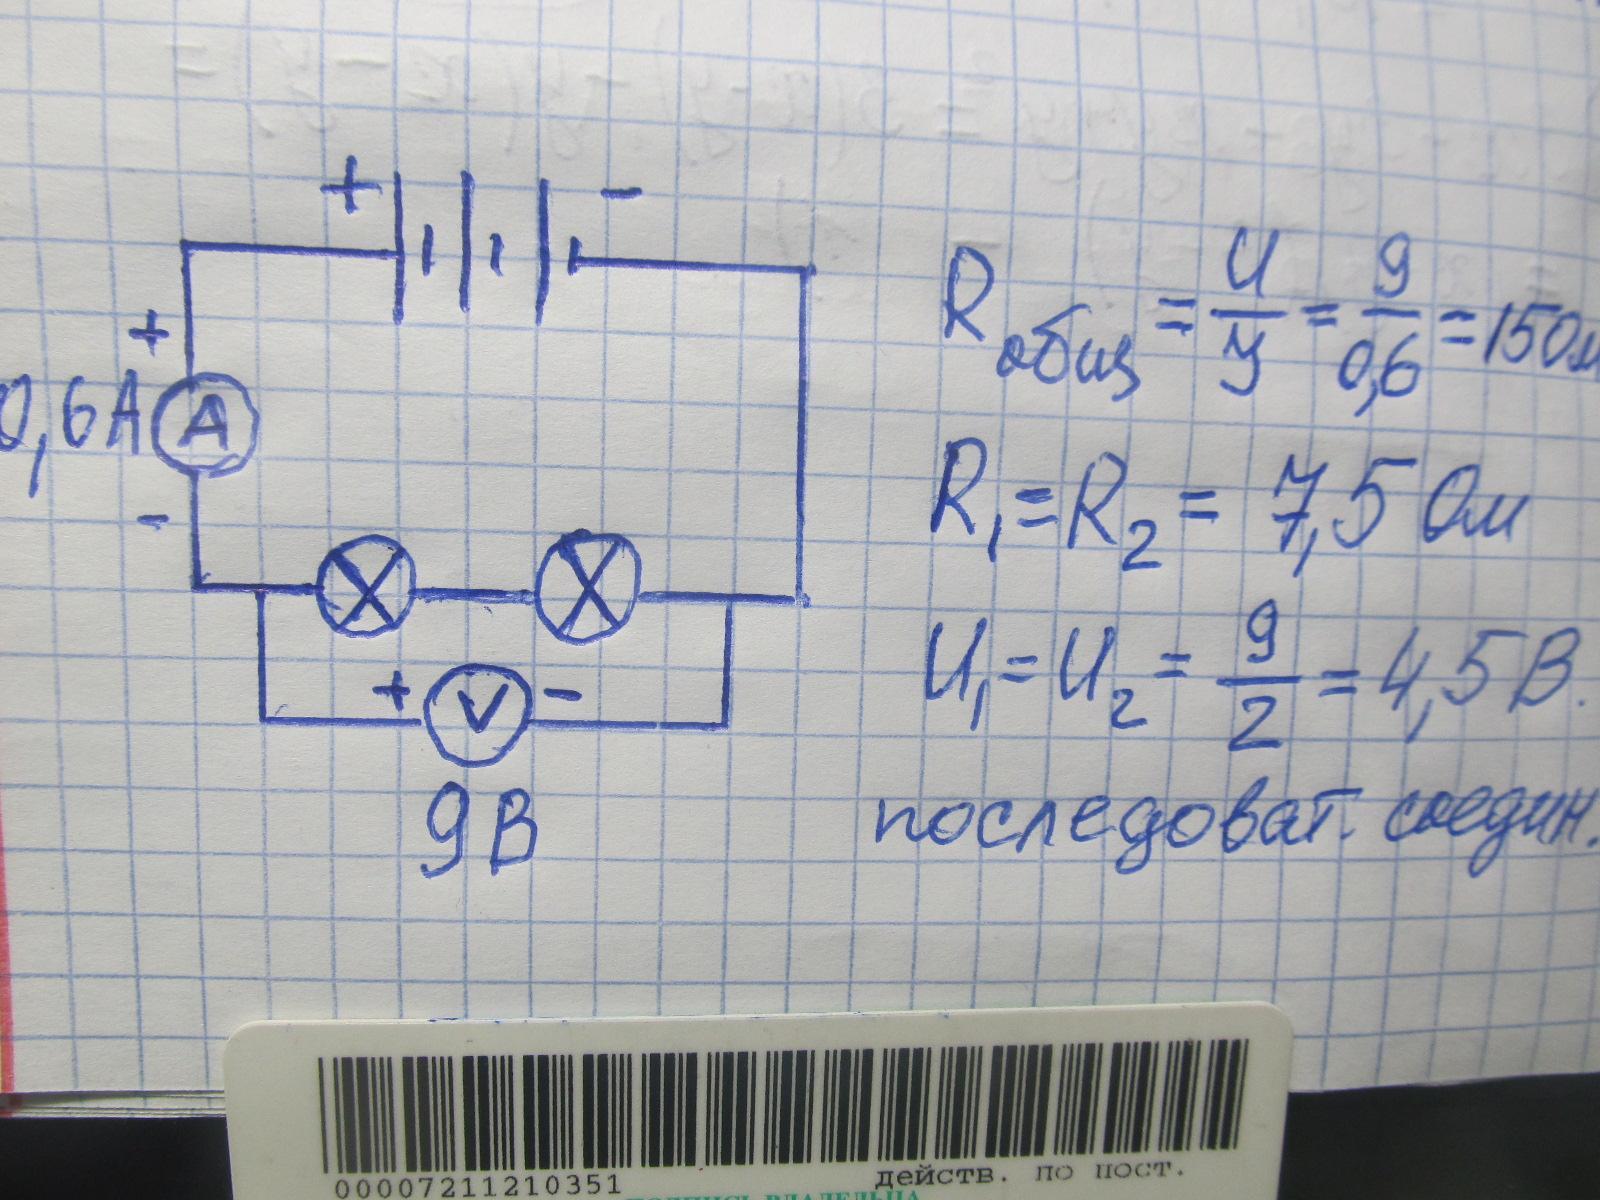 + -
+
0,6А
A
-
+ V -
9 В
R общ = U/У = 9/0,6 = 15 Ом
R₁ = R₂ = 7,5 Ом
U₁ = U₂ = 9/2 = 4,5 В.
последоват. соедин.
00007211210351
действ. по пост.
ПОДПИСЬ ВЛАДЕЛЬЦА